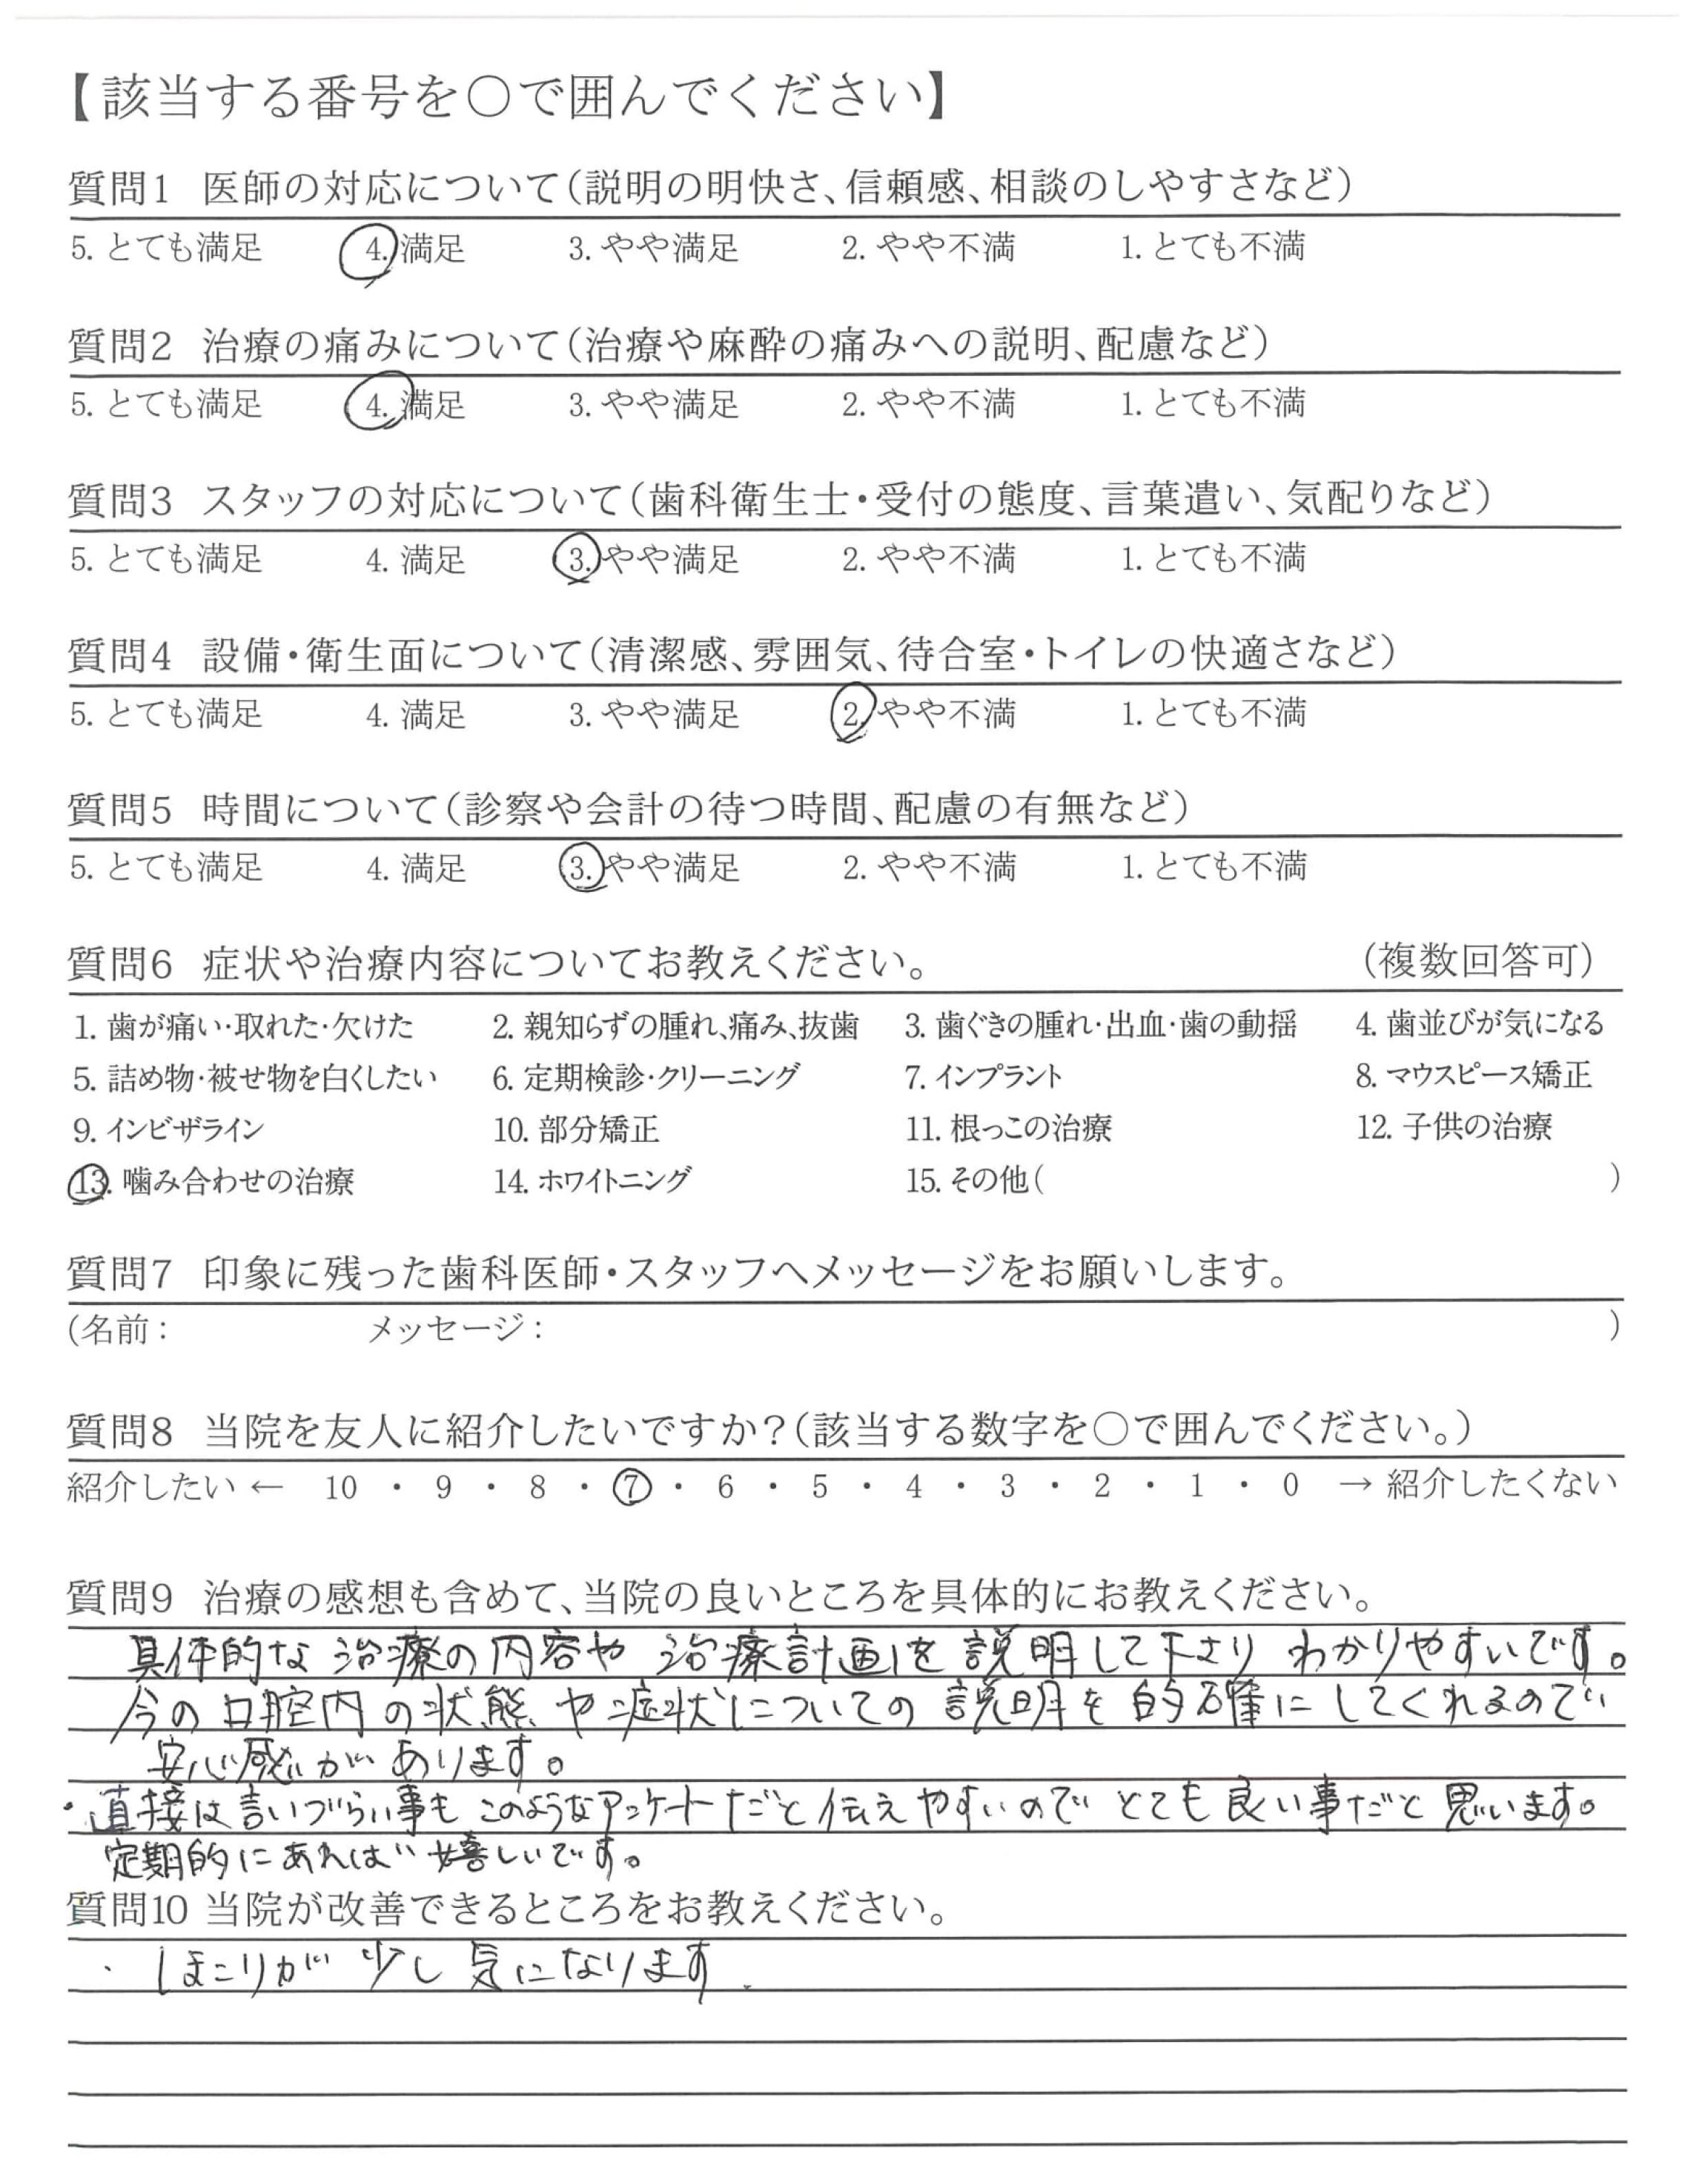 【該当する番号を○で囲んでください】
質問1 医師の対応について(説明の明快さ、信頼感、相談のしやすさなど)
5. とても満足 4. 満足 3. やや満足 2. やや不満 1. とても不満
質問2 治療の痛みについて(治療や麻酔の痛みへの説明、配慮など)
5. とても満足 4. 満足 3. やや満足 2. やや不満 1. とても不満
質問3 スタッフの対応について(歯科衛生士・受付の態度、言葉遣い、気配りなど)
5. とても満足 4. 満足 3. やや満足 2. やや不満 1. とても不満
質問4 設備・衛生面について(清潔感、雰囲気、待合室・トイレの快適さなど)
5. とても満足 4. 満足 3. やや満足 2. やや不満 1. とても不満
質問5 時間について(診察や会計の待つ時間、配慮の有無など)
5. とても満足 4. 満足 3. やや満足 2. やや不満 1. とても不満
質問6 症状や治療内容についてお教えください。 (複数回答可)
1. 歯が痛い・取れた・欠けた 2. 親知らずの腫れ、痛み、抜歯 3. 歯ぐきの腫れ・出血・歯の動揺 4. 歯並びが気になる
5. 詰め物・被せ物を白くしたい 6. 定期検診・クリーニング 7. インプラント 8. マウスピース矯正
9. インビザライン 10. 部分矯正 11. 根っこの治療 12. 子供の治療
13. 噛み合わせの治療 14. ホワイトニング 15. その他( )
質問7 印象に残った歯科医師・スタッフへメッセージをお願いします。
(名前: メッセージ: )
質問8 当院を友人に紹介したいですか?(該当する数字を○で囲んでください。)
紹介したい ← 10 ・ 9 ・ 8 ・ 7 ・ 6 ・ 5 ・ 4 ・ 3 ・ 2 ・ 1 ・ 0 → 紹介したくない
質問9 治療の感想も含めて、当院の良いところを具体的にお教えください。
具体的な治療の内容や 治療計画を説明して下さり わかりやすいです。
今の口腔内の状態や症状についての説明を的確にしてくれるので
安心感があります。
・直接は言いづらい事もこのようなアンケートだと伝えやすいのでとても良い事だと思います。
定期的にあれば嬉しいです。
質問10 当院が改善できるところをお教えください。
・ほこりが少し気になります.